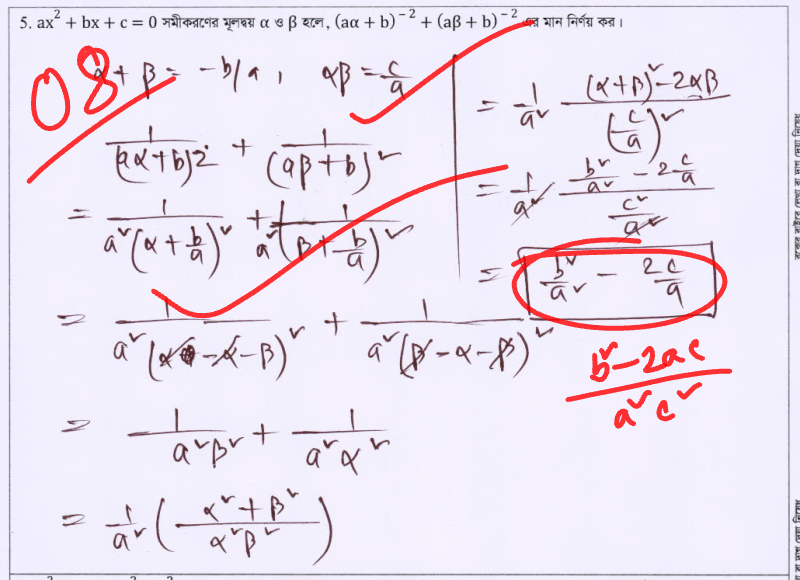 5. ax² + bx + c = 0 সমীকরণের মূলদ্বয় α ও β হলে, (aα + b)⁻² + (aβ + b)⁻² এর মান নির্ণয় কর।
08
α + β = -b/a, αβ = c/a
1/(aα+b)² + 1/(aβ+b)²
= 1/a²(α + b/a)² + 1/a²(β + b/a)²
= 1/a²(α - α - β)² + 1/a²(β - α - β)²
= 1/a²β² + 1/a²α²
= 1/a² (α² + β²/α²β²)
= 1/a² (α+β)² - 2αβ/(c/a)²
= 1/a² b²/a² - 2c/a/c²/a²
= b²/a² - 2c/a
b² - 2ac/a²c²